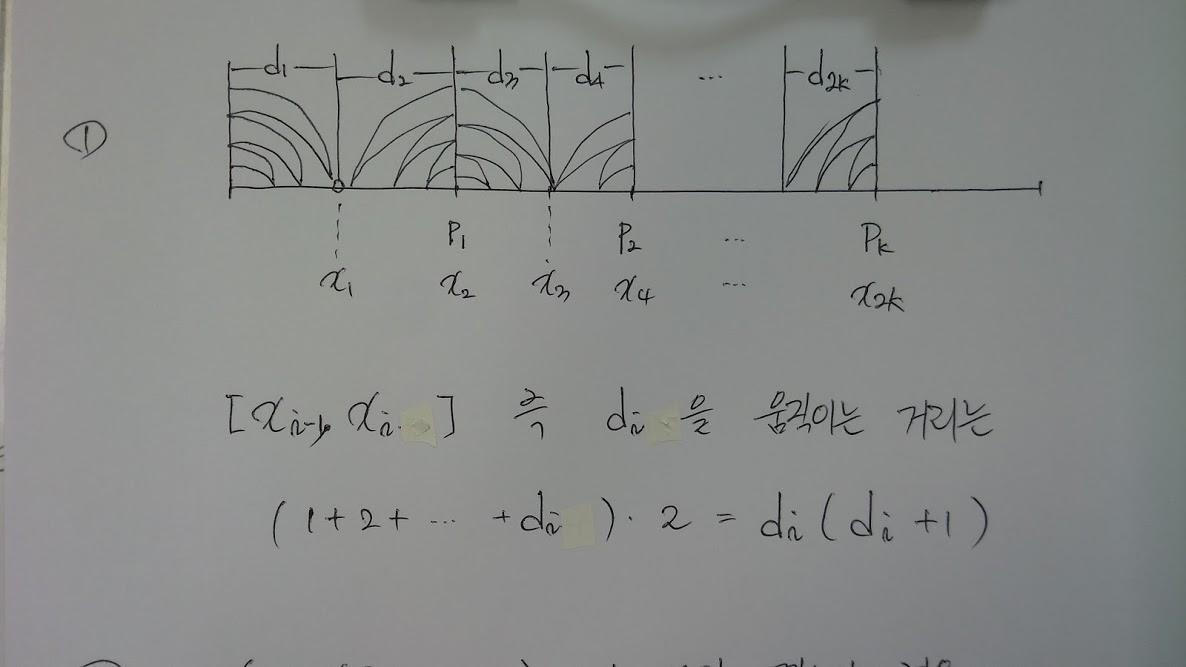 ①
d₁ d₂ d₃ d₄ ... d₂ₖ
P₁ P₂ ... Pₖ
x₁ x₂ x₃ x₄ ... x₂ₖ
[xᵢ₋₁, xᵢ] 즉 dᵢ을 움직이는 거리는
(1+2+ ... +dᵢ)·2 = dᵢ(dᵢ+1)